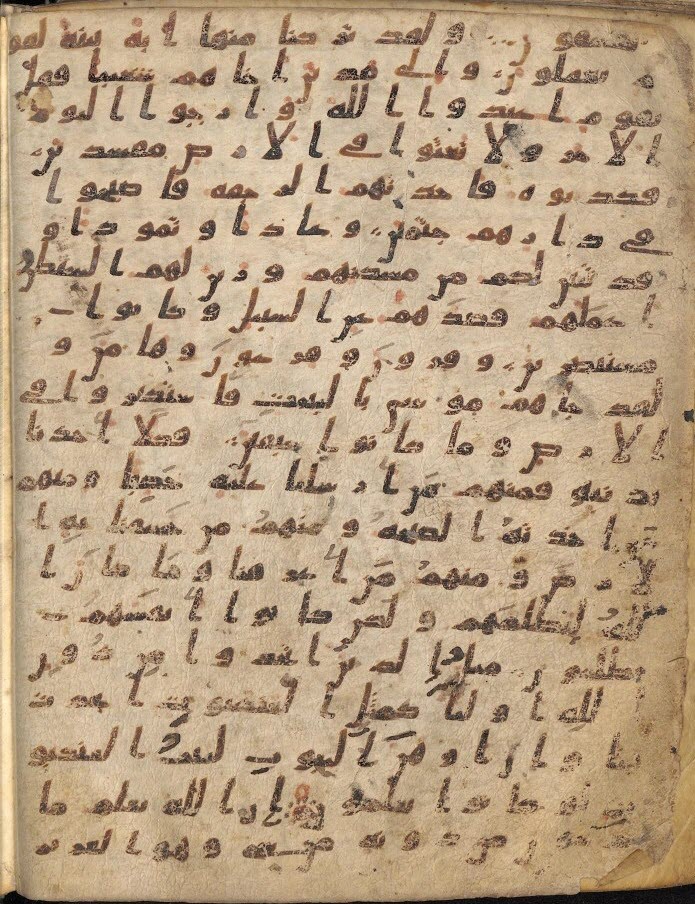 يفسقون ولقد تركنا منها اية بينة لقو
م يعقلون والى مدين اخاهم شعيبا فقال
يقوم اعبدوا الله وارجوا اليوم
الاخر ولا تعثوا في الارض مفسدين
فكذبوه فاخذتهم الرجفة فاصبحوا
في دارهم جثمين وعادا وثمودا و
قد تبين لكم من مسكنهم وزين لهم الشيطن
اعملهم فصدهم عن السبيل وكانوا
مستبصرين وقرون وفرعون وهامن و
لقد جاهم موسى بالبينت فاستكبروا في
الارض وما كانوا سبقين فكلا اخذنا
بذنبه فمنهم من ارسلنا عليه حصبا ومنهم
من اخذته الصيحة ومنهم من خسفنا به ا
لارض ومنهم من اغرقنا وما كان ا
لله ليظلمهم ولكن كانوا انفسهم
يظلمون مثل الذين اتخذوا من دون
الله اوليا كمثل العنكبوت اتخذت
بيتا وان اوهن البيوت لبيت العنكبو
ت لو كانوا يعلمون ان الله يعلم ما
يدعون من دونه من شي وهو العزيز